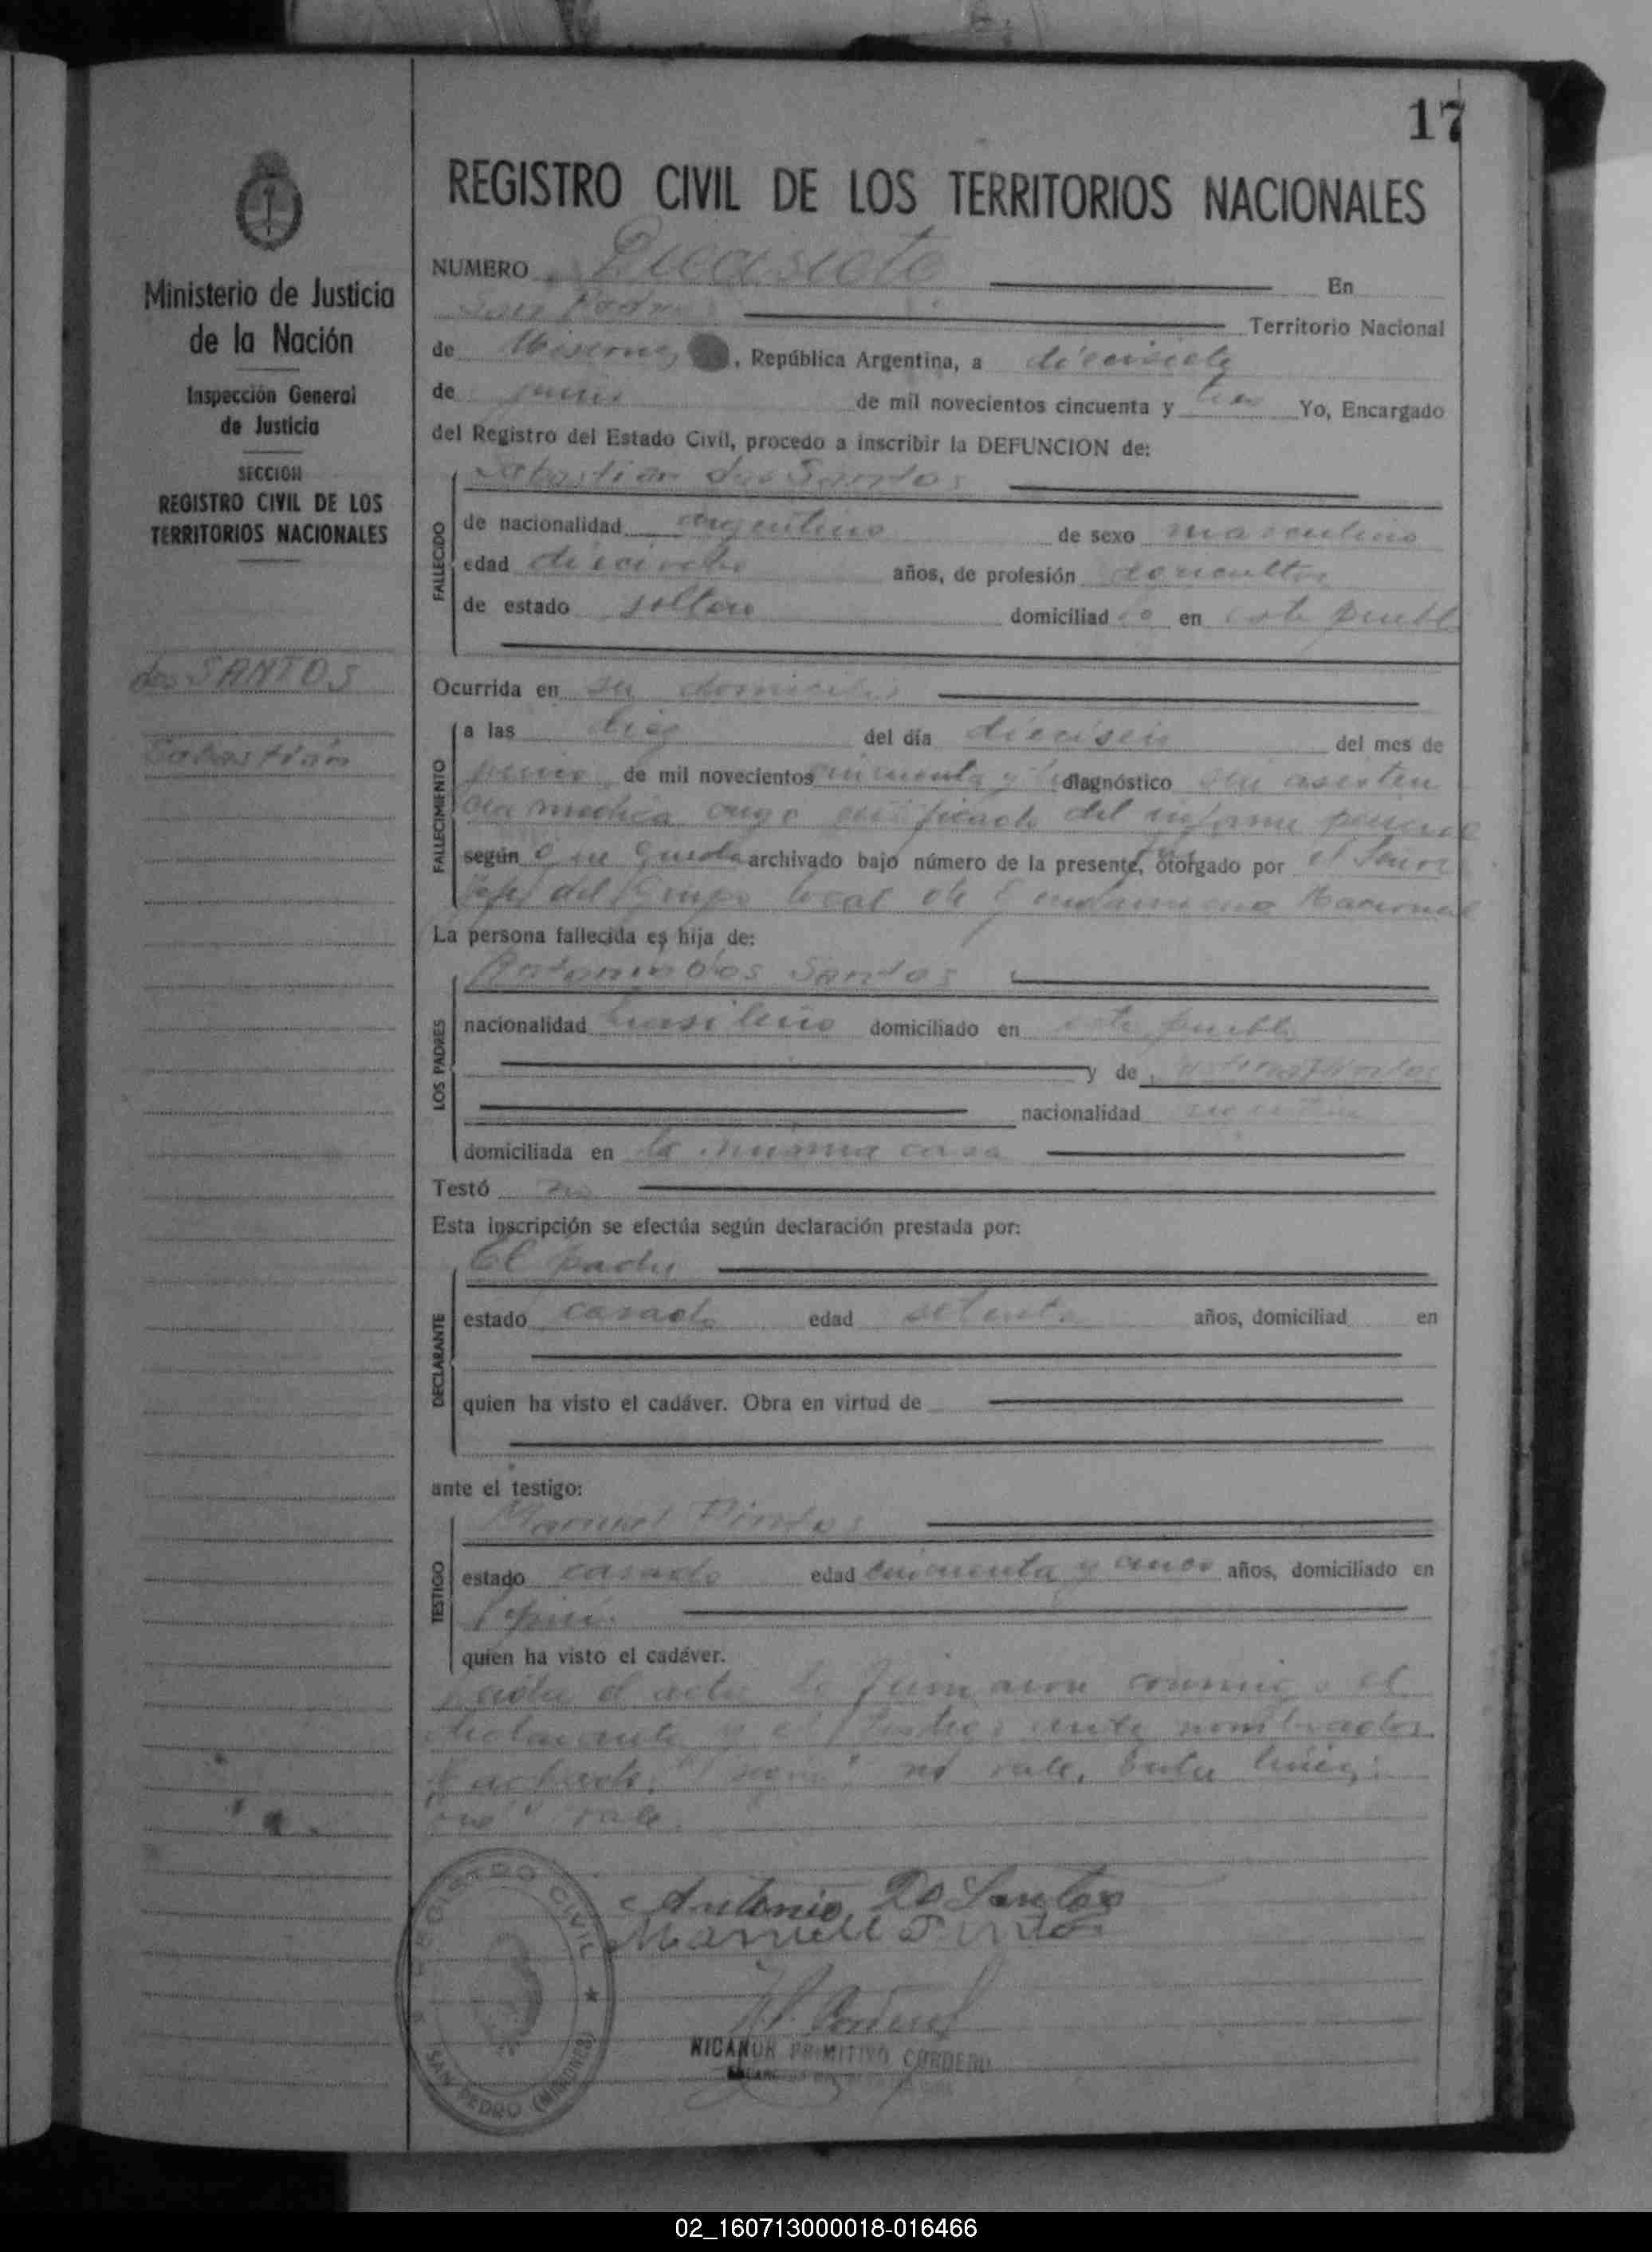 17
REGISTRO CIVIL DE LOS TERRITORIOS NACIONALES
Ministerio de Justicia
de la Nación
Inspección General
de Justicia
SECCION
REGISTRO CIVIL DE LOS
TERRITORIOS NACIONALES
dos SANTOS
Sebastián
NUMERO Diecisiete En
San Pedro Territorio Nacional
de Misiones, República Argentina, a diecisiete
de junio de mil novecientos cincuenta y tres Yo, Encargado
del Registro del Estado Civil, procedo a inscribir la DEFUNCION de:
FALLECIDO
Sebastian dos Santos
de nacionalidad argentino de sexo masculino
edad dieciocho años, de profesión agricultor
de estado soltero domiciliado en este pueblo
Ocurrida en su domicilio
FALLECIMIENTO
a las diez del día dieciseis del mes de
junio de mil novecientos cincuenta y tres diagnóstico sin asisten
cia medica cuyo certificado del informe
según que queda archivado bajo número de la presente, otorgado por el Señor
Jefe del Grupo local de Gendarmeria Nacional
La persona fallecida es hija de:
LOS PADRES
Antonio dos Santos
nacionalidad brasileño domiciliado en este pueblo
y de
nacionalidad
domiciliada en la misma casa
Testó no
Esta inscripción se efectúa según declaración prestada por:
DECLARANTE
El padre
estado casado edad setenta años, domiciliad en
quien ha visto el cadáver. Obra en virtud de
ante el testigo:
TESTIGO
Manuel Pintos
estado casado edad cincuenta y cinco años, domiciliado en
quien ha visto el cadáver.
el acta la firmaron conmigo el
declarante y el ante nombrados
no vale, Entre lineas:
"que" vale.
Antonio Do Santos
Manuel Pinto
REGISTRO CIVIL
SAN PEDRO (MISIONES)
NICANOR PRIMITIVO CORDERO
02_160713000018-016466